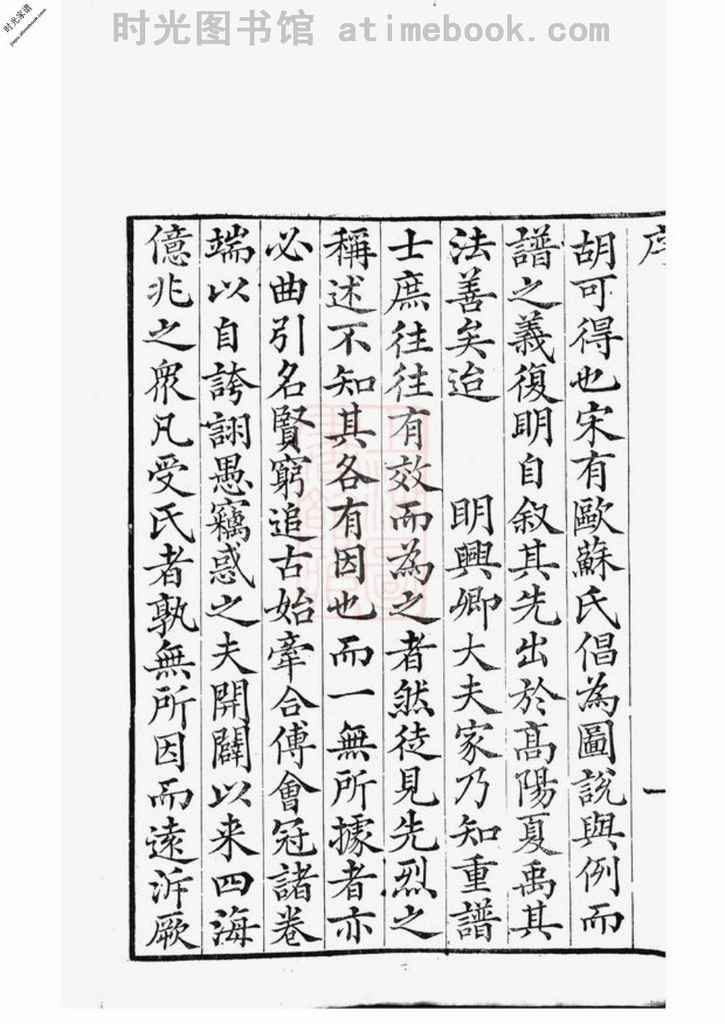 时光图书馆 atimebook.com
时光家谱
序
一
胡可得也宋有歐蘇氏倡為圖說與例而
譜之義復明自叙其先出於高陽夏禹其
法善矣迨 明興卿大夫家乃知重譜
士庶往往有效而為之者然徒見先烈之
稱述不知其各有因也而一無所據者亦
必曲引名賢窮追古始牽合傅會冠諸卷
端以自誇詡愚竊惑之夫開闢以来四海
億兆之衆凡受氏者孰無所因而遠泝厥